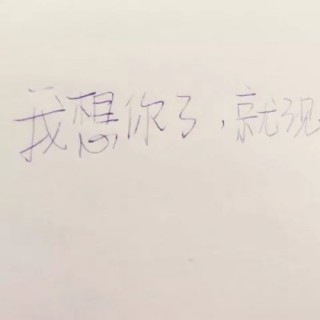 我想你了,就现